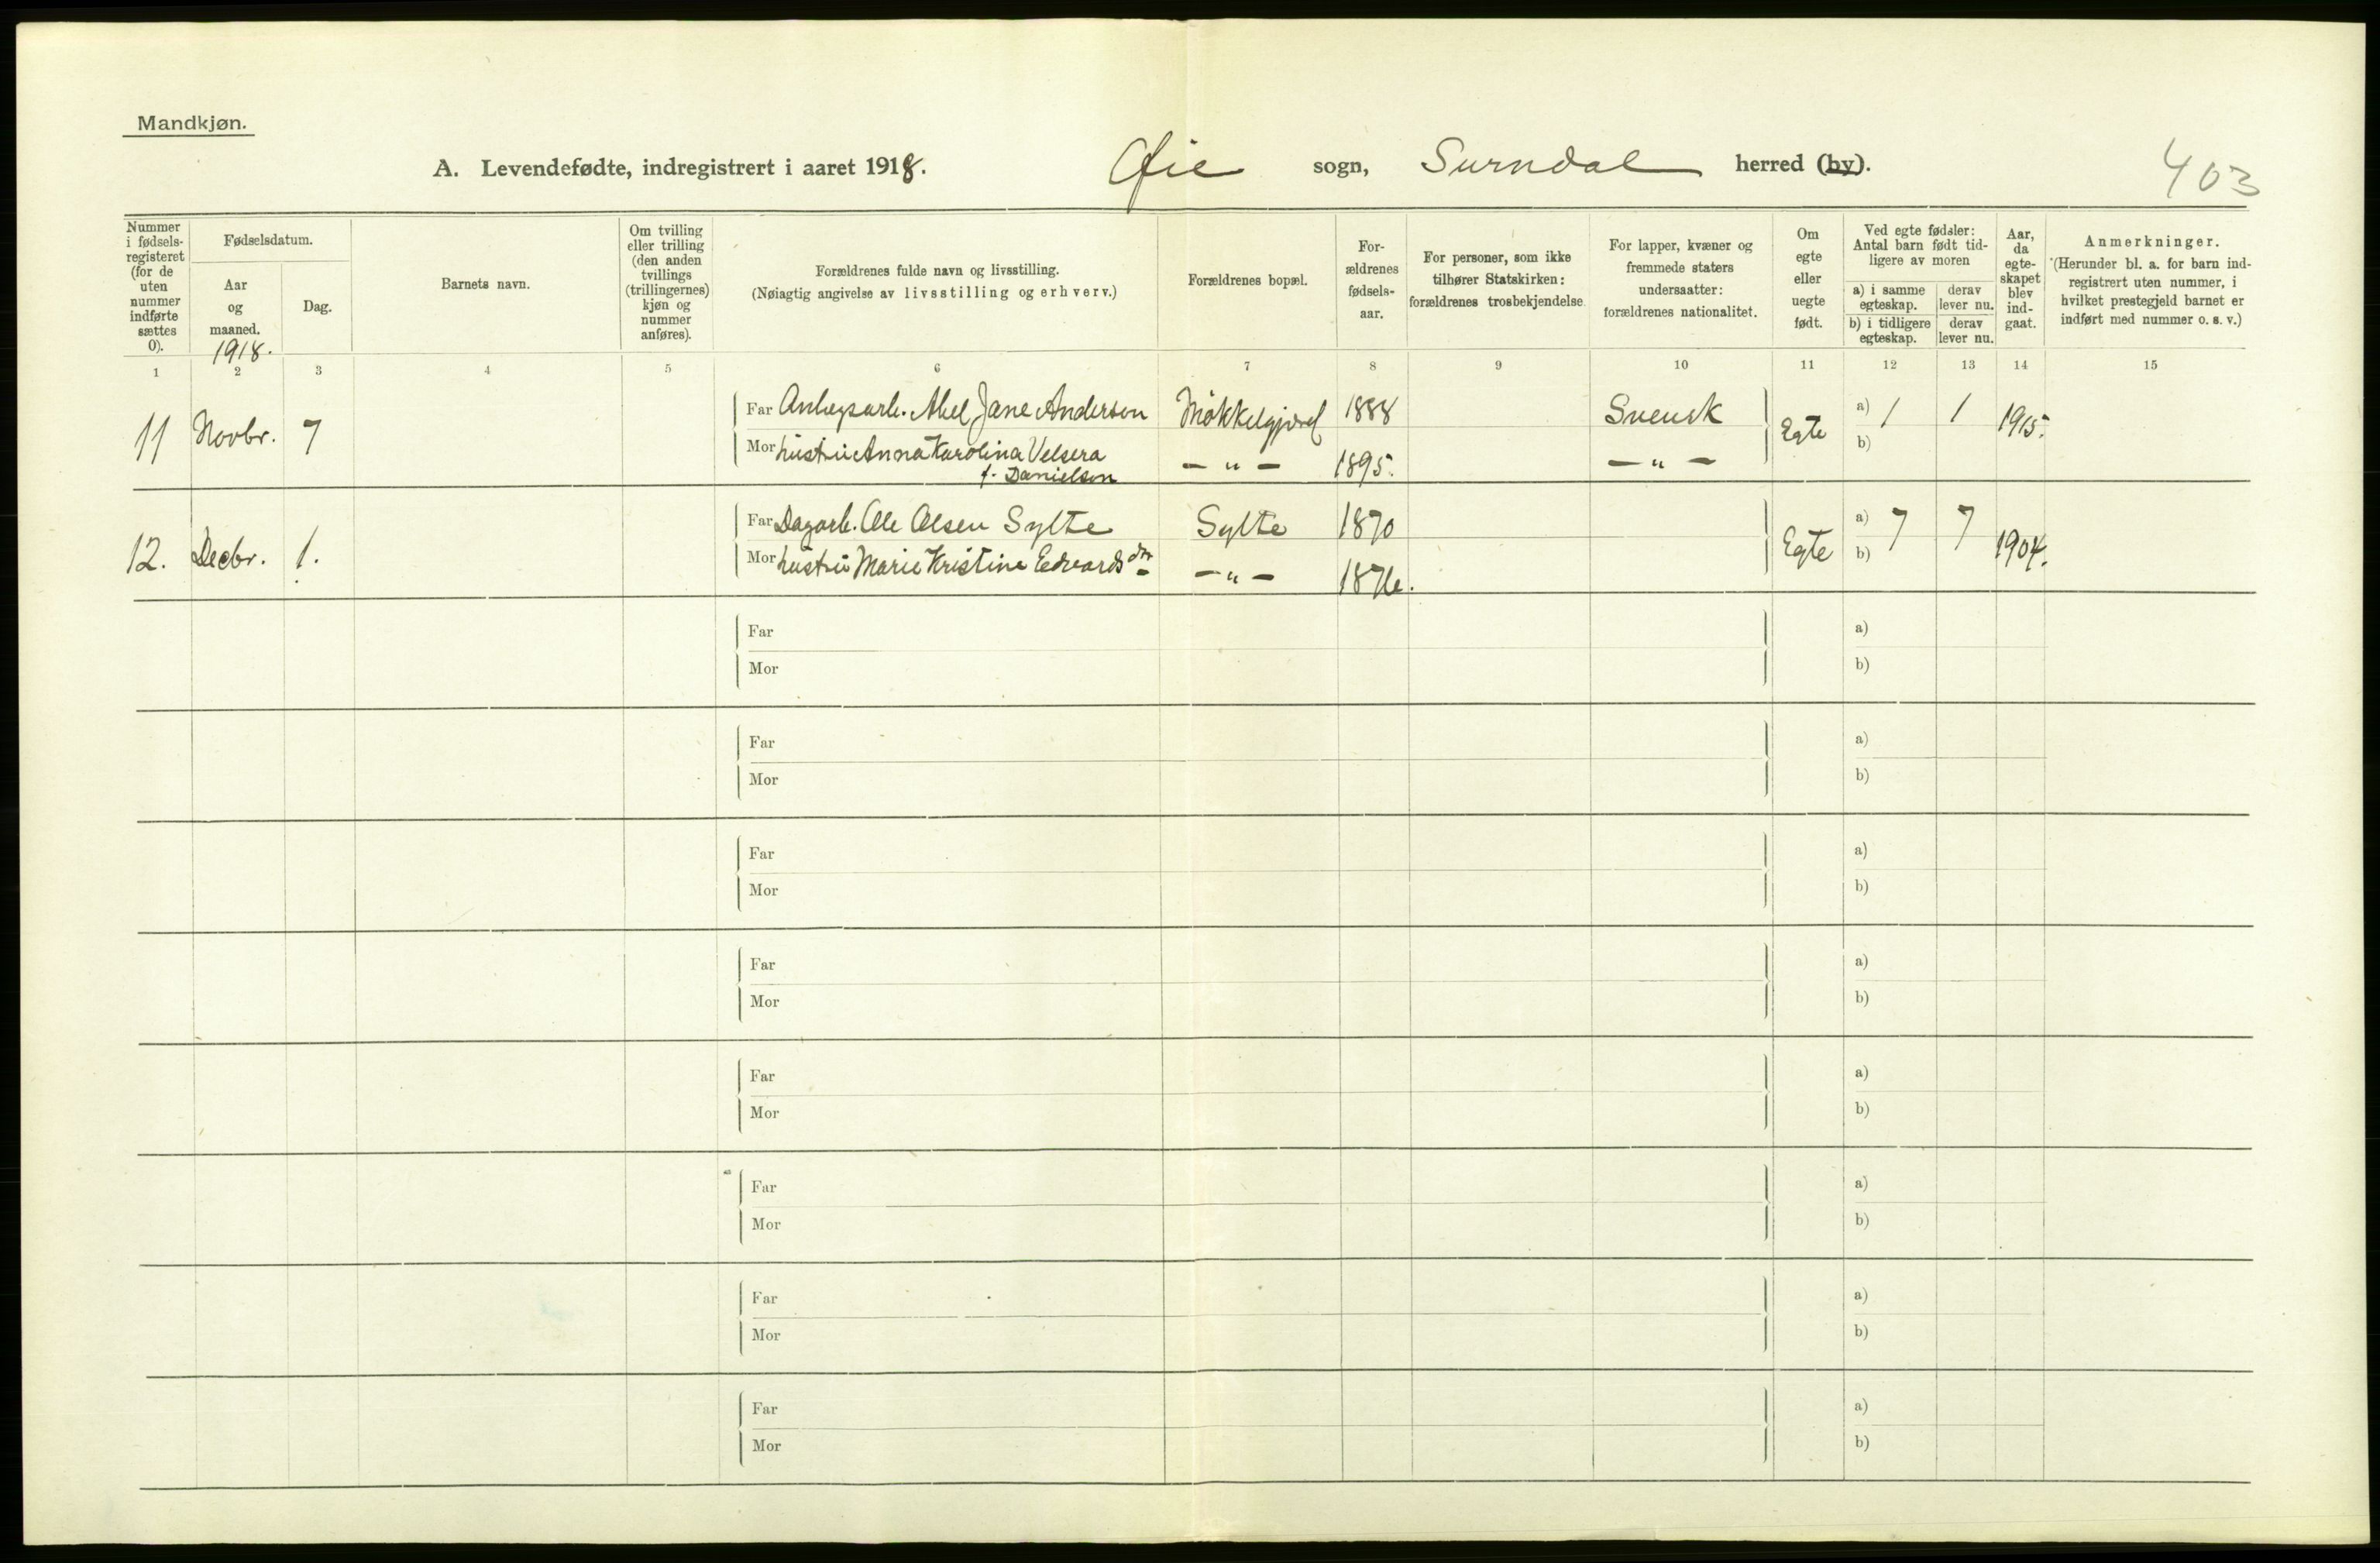 Mandkjøn.
A. Levendefødte, indregistrert i aaret 1918. Øie sogn, Surndal herred (by).
403
Nummer i fødsels-registeret (for de uten nummer indførte sættes 0).
Fødselsdatum.
Aar og maaned.
1918.
Dag.
Barnets navn.
Om tvilling eller trilling (den anden tvillings (trillingernes) kjøn og nummer anføres).
Forældrenes fulde navn og livsstilling.
(Nøiagtig angivelse av livsstilling og erhverv.)
Forældrenes bopæl.
For-ældrenes fødsels-aar.
For personer, som ikke tilhører Statskirken: forældrenes trosbekjendelse.
For lapper, kvæner og fremmede staters undersaatter: forældrenes nationalitet.
Om egte eller uegte født.
Ved egte fødsler: Antal barn født tid-ligere av moren
a) i samme egteskap.
derav lever nu.
b) i tidligere egteskap.
derav lever nu.
Aar, da egte-skapet blev ind-gaat.
Anmerkninger.
(Herunder bl. a. for barn ind-registrert uten nummer, i hvilket prestegjeld barnet er indført med nummer o. s. v.)
1 2 3 4 5 6 7 8 9 10 11 12 13 14 15
Far Anlegsarb. Abel Jane Anderson 1888 Svensk a) 1 1
11 Novbr. 7 Egte 1915.
Mor hustru Anna Karolina Velsera — " — 1895. — " — b)
f. Danielson
Far Dagarb. Ole Olsen Sylte Sylte 1870 a) 7 7
12. Decbr. 1. Egte 1904.
Mor hustru Marie Kristine Edvardsdtr — " — 1876. b)
Far a)
Mor b)
Far a)
Mor b)
Far a)
Mor b)
Far a)
Mor b)
Far a)
Mor b)
Far a)
Mor b)
Far a)
Mor b)
Far a)
Mor b)